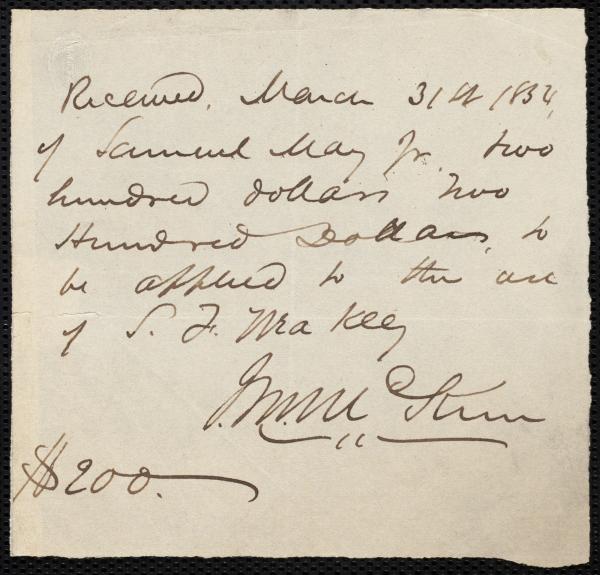 Received, March 31st
of Samuel May Jr. two
hundred dollars Two
Hundred Dollars, to
be applied to the use
of S. F.
J. M. McKim
$200.